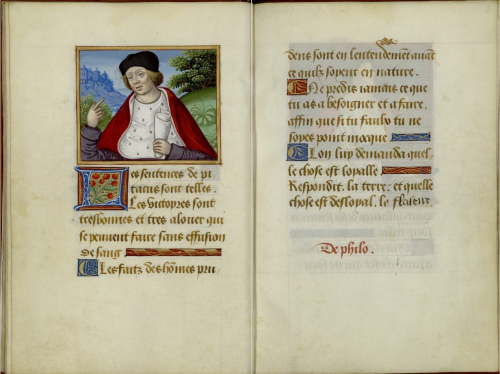 Les sentences de pi
tacus sont telles.
Les victoyres sont
tresbonnes et tres alouer qui
se peuvent faire sans effusion
de sang
Les faitz des hōmes pru
dens sont en lentendement avāt
ce quilz soyent en nature.
Ne predis iamais ce que
tu as a besoigner et a faire.
affin que si tu faulx tu ne
soyes point mocque
Lon luy demanda quel,
le chose est loyalle
Respondit. la terre: et quelle
chose est desloyal. le
De philo.